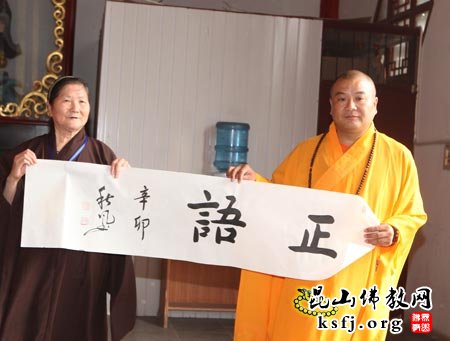 正語
辛卯
秋
昆山佛教网
ksfj.org